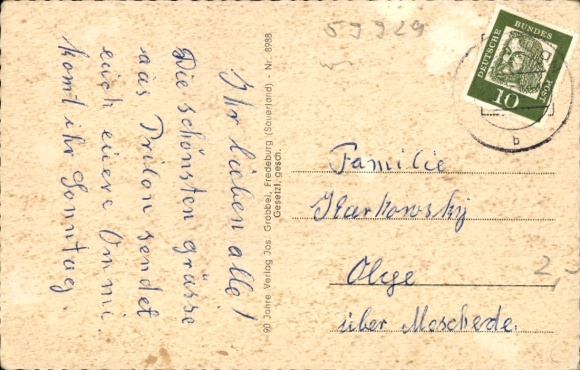 Ihr lieben alle!
Die schönsten grüsse
aus Brilon sendet
euch euere Ommi.
komt ihr Sonntag
60 Jahre Verlag Jos. Grobbel, Fredeburg (Sauerland) - Nr. 8988
Gesetzl. gesch.
59929
DEUTSCHE BUNDESPOST
10
b
Familie
Karkowsky
Olpe
über Meschede.
2,-